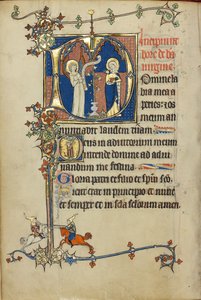 Incipiunt
hore de bea
virgine
Domine la
bia mea a
peries: et os
meum an
nuntiabit laudem tuam.
Deus in adiutorium meum
intende domine ad adiu
uandum me festina
Gloria patri et filio et spiri sco
sicut erat in principio et nunc
et semper et in scla sclorum amen